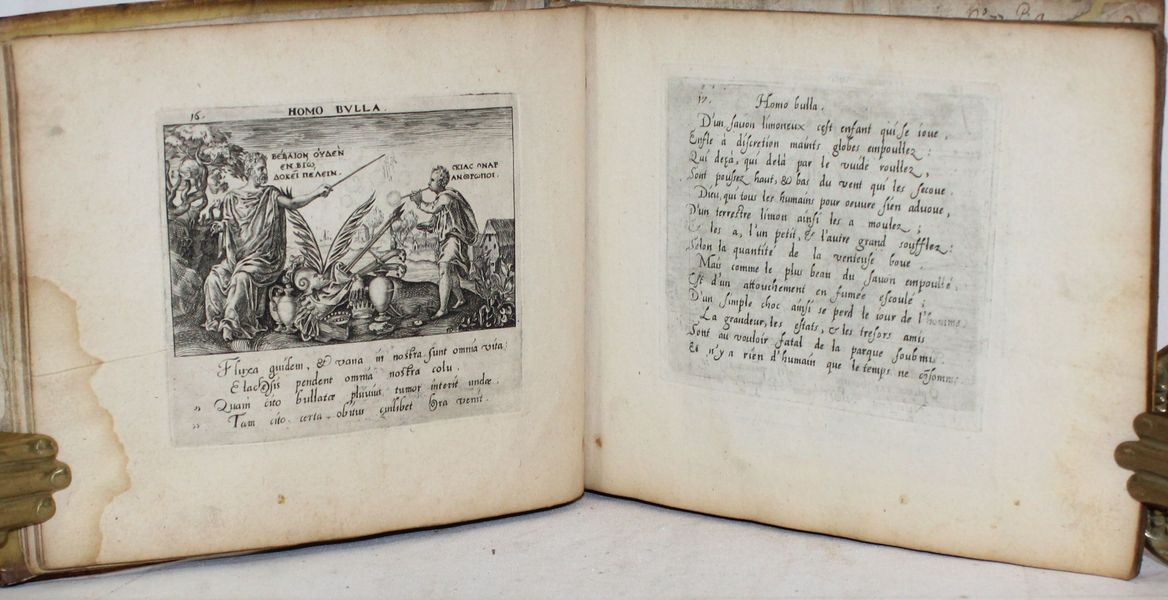 16.
HOMO BVLLA.
ΒΕΒΑΙΟΝ ΟΥΔΕΝ
ΕΝ ΒΙΩ
ΔΟΚΕΙ ΠΕΛΕΙΝ.
ΣΚΙΑΣ ΟΝΑΡ
ΑΝΘΡΩΠΟΙ.
Fluxa quidem, & vana in nostra sunt omnia vita:
E lachesis pendent omnia nostra colu.
„ Quam cito bullatæ pluvius tumor interit undæ.
„ Tam cito certa obitus quilibet hora venit.
17.
Homo bulla.
D'un savon limoneux cest enfant qui se ioue,
Enfle à discretion maints globes empoullez:
Qui deçà, qui delà par le vuide roullez,
Sont poussez haut, & bas du vent qui les secoue.
Dieu, qui tous les humains pour oeuvre sien advoue,
D'un terrestre limon ainsi les a moulez;
les a, l'un petit, & l'autre grand soufflez:
Selon la quantité de la venteuse boue.
Mais comme le plus beau du savon empoullé.
Est d'un attouchement en fumée escoulé;
D'un simple choc ainsi se perd le iour de l'homme.
La grandeur, les estats, & les tresors amis
Sont au vouloir fatal de la parque soubmis
Et n'y a rien d'humain que le temps ne cõsomme.